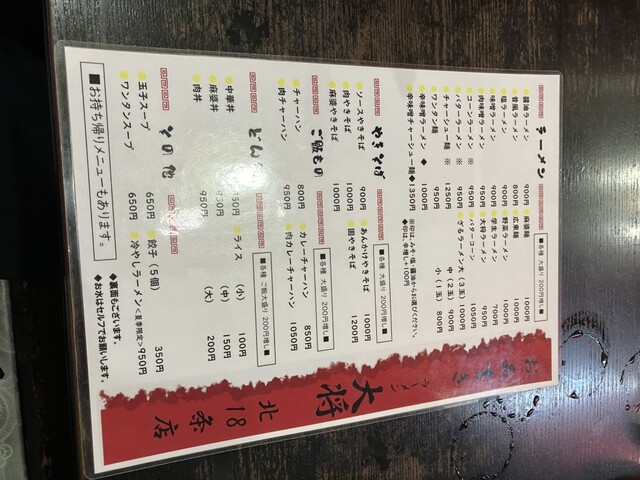 お品書き
ラーメン
大将
北18条店
ラーメン
■各種 大盛り 200円増し■
醤油ラーメン 900円
麻婆麺 1000円
昔風ラーメン 800円
広東麺 1000円
塩ラーメン 900円
野菜ラーメン 1000円
味噌ラーメン 900円
学生ラーメン 700円
肉味噌ラーメン 950円
大将ラーメン 950円
コーンラーメン ※ 950円
バターコーン 1050円
バターラーメン ※ 950円
ざるラーメン 大(3玉) 1000円
チャーシュー麺 ※ 1250円
中(2玉) 900円
ワンタン麺 950円
小(1玉) 800円
辛味噌ラーメン ◆ 1000円
辛味噌チャーシュー麺◆1350円
※印は、みそ・塩・醤油からお選びください。
◆印は、辛増し+100円
やきそば
■各種 大盛り 200円増し■
ソースやきそば 900円
あんかけやきそば 1000円
肉やきそば 1000円
固やきそば 1200円
麻婆やきそば 1000円
ご飯もの
■各種 大盛り 200円増し■
チャーハン 800円
カレーチャーハン 850円
肉チャーハン 950円
肉カレーチャーハン 1050円
どん
■各種 ご飯大盛り 200円増し■
中華丼
ライス (小) 100円
麻婆丼
(中) 150円
肉丼 950円
(大) 200円
その他
玉子スープ 650円
餃子(5個) 350円
ワンタンスープ 650円
冷やしラーメン<夏季限定>950円
■お持ち帰りメニューもあります。
◆裏面もございます。
◆お水はセルフでお願いします。